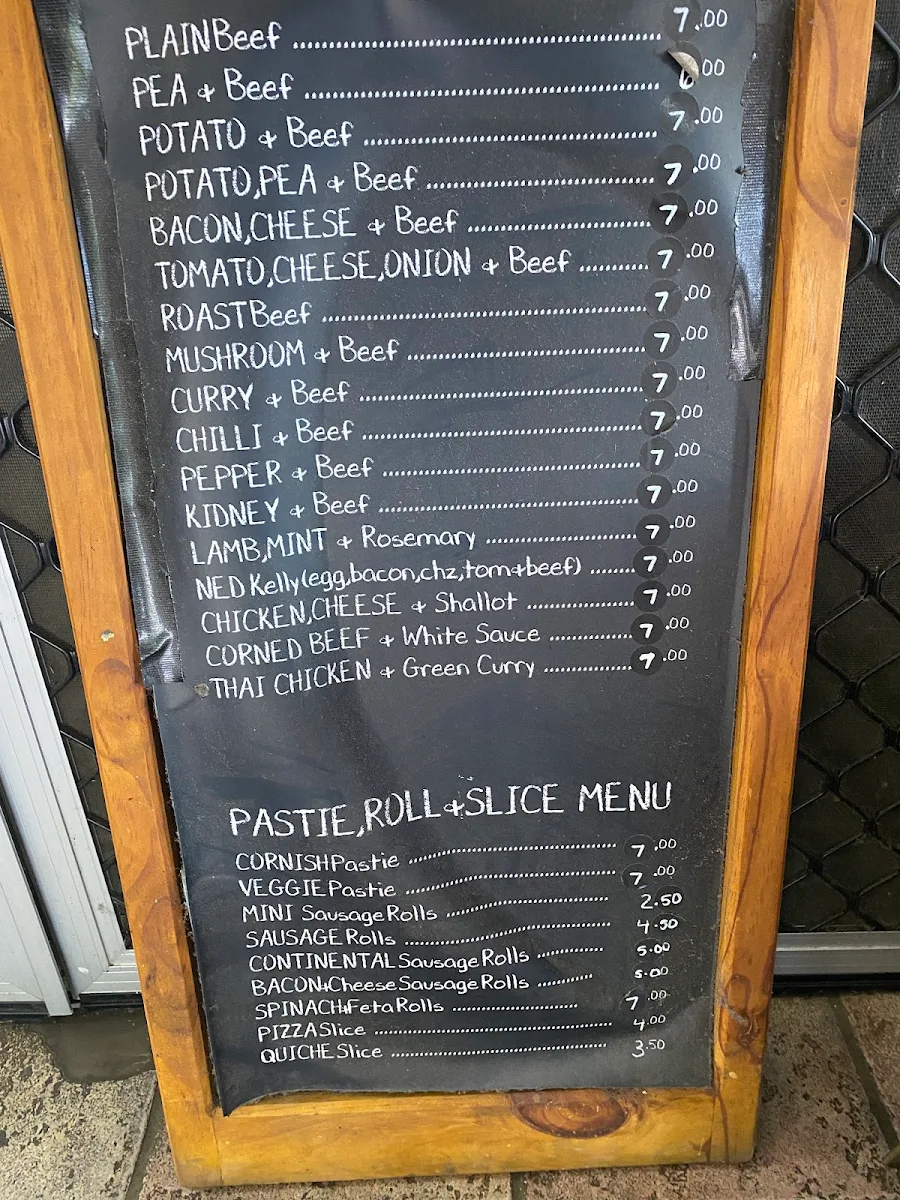 PLAIN Beef ........ 7.00
PEA & Beef ........ 6.00
POTATO & Beef ........ 7.00
POTATO, PEA & Beef ........ 7.00
BACON, CHEESE & Beef ........ 7.00
TOMATO, CHEESE, ONION & Beef ........ 7.00
ROAST Beef ........ 7.00
MUSHROOM & Beef ........ 7.00
CURRY & Beef ........ 7.00
CHILLI & Beef ........ 7.00
PEPPER & Beef ........ 7.00
KIDNEY & Beef ........ 7.00
LAMB, MINT & Rosemary ........ 7.00
NED Kelly (egg, bacon, chz, tom & beef) ........ 7.00
CHICKEN, CHEESE & Shallot ........ 7.00
CORNED BEEF & White Sauce ........ 7.00
THAI CHICKEN & Green Curry ........ 7.00
PASTIE, ROLL & SLICE MENU
CORNISH Pastie ........ 7.00
VEGGIE Pastie ........ 7.00
MINI Sausage Rolls ........ 2.50
SAUSAGE Rolls ........ 4.50
CONTINENTAL Sausage Rolls ........ 5.00
BACON & Cheese Sausage Rolls ........ 5.00
SPINACH & Feta Rolls ........ 7.00
PIZZA Slice ........ 4.00
QUICHE Slice ........ 3.50